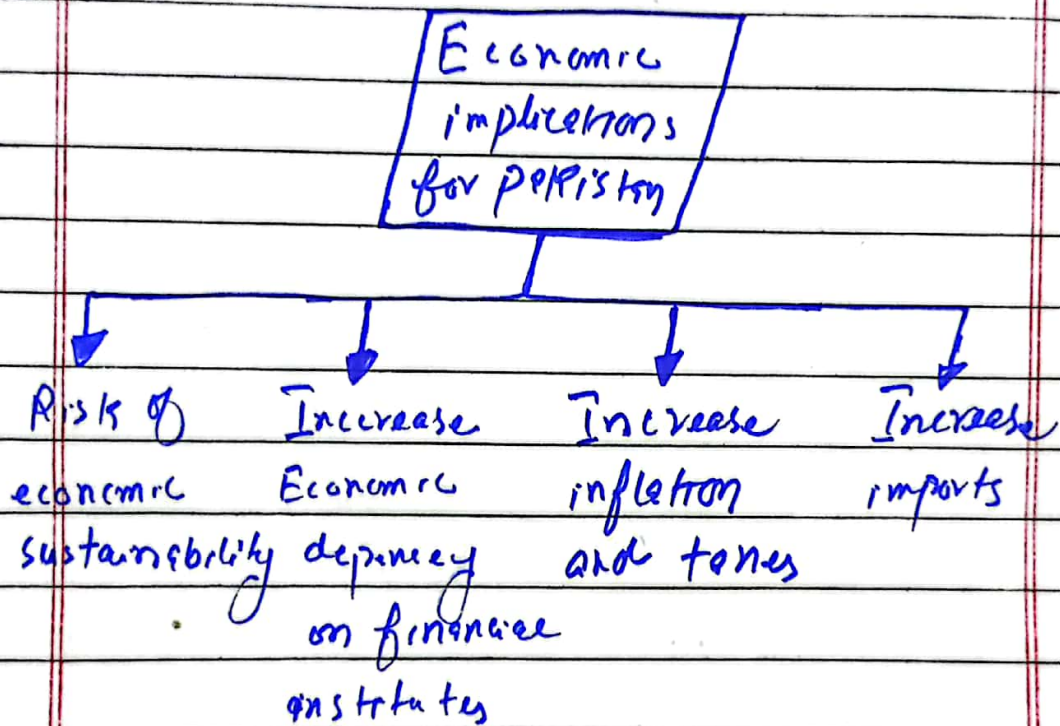 Economic
implications
for pakistan
Risk of
economic
sustainability
Increase
Economic
depency
on financial
institutes
Increase
inflation
and taxes
Increase
imports